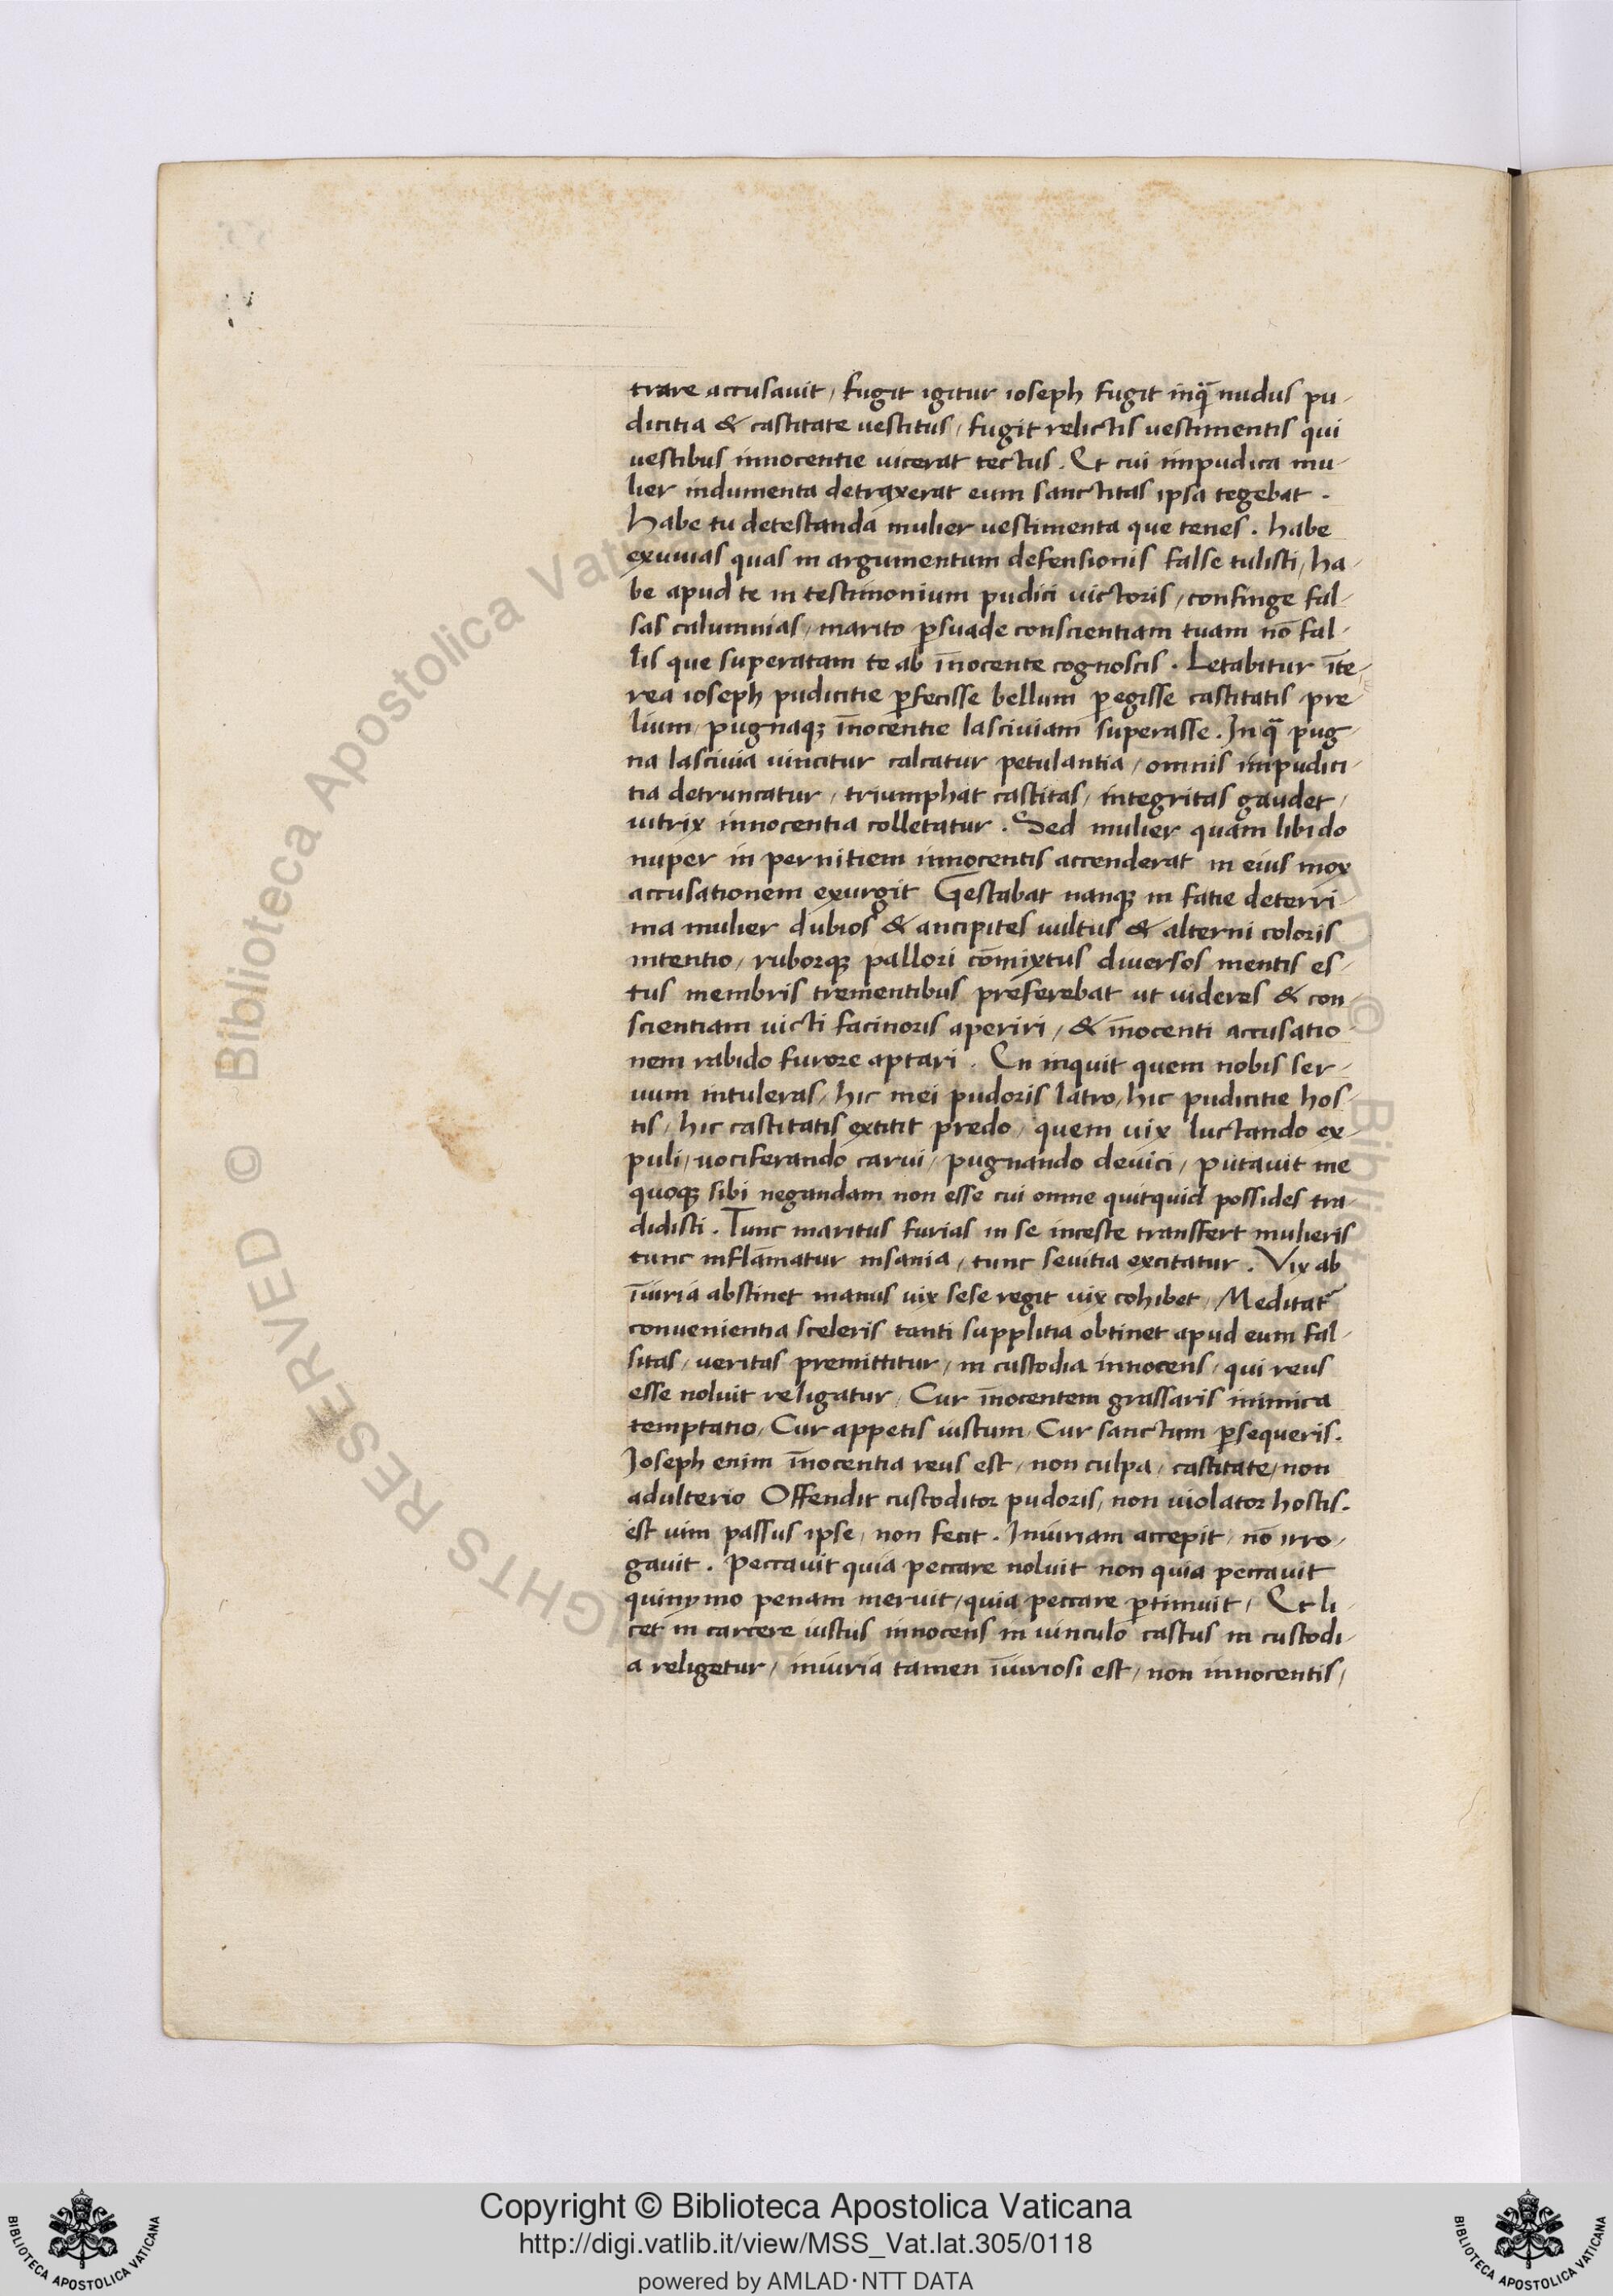 trare accusauit / fugit igitur ioseph fugit inq̃ nudus pu-
dicitia & castitate uestitus / fugit relictis uestimentis qui
uestibus innocentie uicerat tectus. Et cui impudica mu-
lier indumenta detraxerat eum sanctitas ipsa tegebat.
Habe tu detestanda mulier uestimenta que tenes. habe
exuuias quas in argumentum defensionis false tulisti / ha-
be apud te in testimonium pudici uictoris / confinge fal-
sas calumnias / marito ꝑsuade conscientiam tuam nō fal-
lis que superatam te ab īnocente cognoscis. Letabitur īte-
rea ioseph pudicitie ꝑfecisse bellum ꝑegisse castitatis pre-
lium / pugnaqꝫ īnocentie lasciuiam superasse. In q̃ pug-
na lasciuia uincitur calcatur petulantia / omnis impudici-
tia detruncatur / triumphat castitas / integritas gaudet /
uitrix innocentia colletatur. Sed mulier quam libido
nuper in pernitiem innocentis accenderat in eius mox
accusationem exurgit Gestabat nanqꝫ in facie deterri-
ma mulier dubios & ancipites uultus & alterni coloris
intentio / ruborqꝫ pallori cōmixtus diuersos mentis es-
tus membris trementibus preferebat ut uideres & con-
scientiam uicti facinoris aperiri / & īnocenti accusatio-
nem rabido furore aptari. En inquit quem nobis ser-
uum intuleras / hic mei pudoris latro / hic pudicitie hos-
tis / hic castitatis extitit predo / quem uix luctando ex-
puli / uociferando carui / pugnando deuici / putauit me
quoqꝫ sibi negandam non esse cui omne quicquid possides tra-
didisti. Tunc maritus furias in se inceste transfert mulieris
tunc inflāmatur insania / tunc seuitia excitatur. Vix ab
īiuria abstinet manus uix sese regit uix cohibet / Meditat᷑
conuenientia sceleris tanti supplitia obtinet apud eum fal-
sitas / ueritas premittitur / in custodia innocens / qui reus
esse noluit religatur / Cur īnocentem grassaris inimica
temptatio / Cur appetis iustum / Cur sanctum ꝑsequeris.
Ioseph enim īnocentia reus est / non culpa / castitate / non
adulterio Offendit custoditor pudoris / non uiolator hostis.
est uim passus ipse / non fecit. Iniuriam accepit / nō irro-
gauit. Peccauit quia peccare noluit non quia peccauit
quinymo penam meruit / quia peccare ꝑtimuit / Et li-
cet in carcere iustus innocens in uinculo castus in custodi-
a religetur / iniuria tamen īiuriosi est / non innocentis /
Copyright © Biblioteca Apostolica Vaticana
http://digi.vatlib.it/view/MSS_Vat.lat.305/0118
powered by AMLAD·NTT DATA
BIBLIOTECA APOSTOLICA VATICANA
BIBLIOTECA APOSTOLICA VATICANA